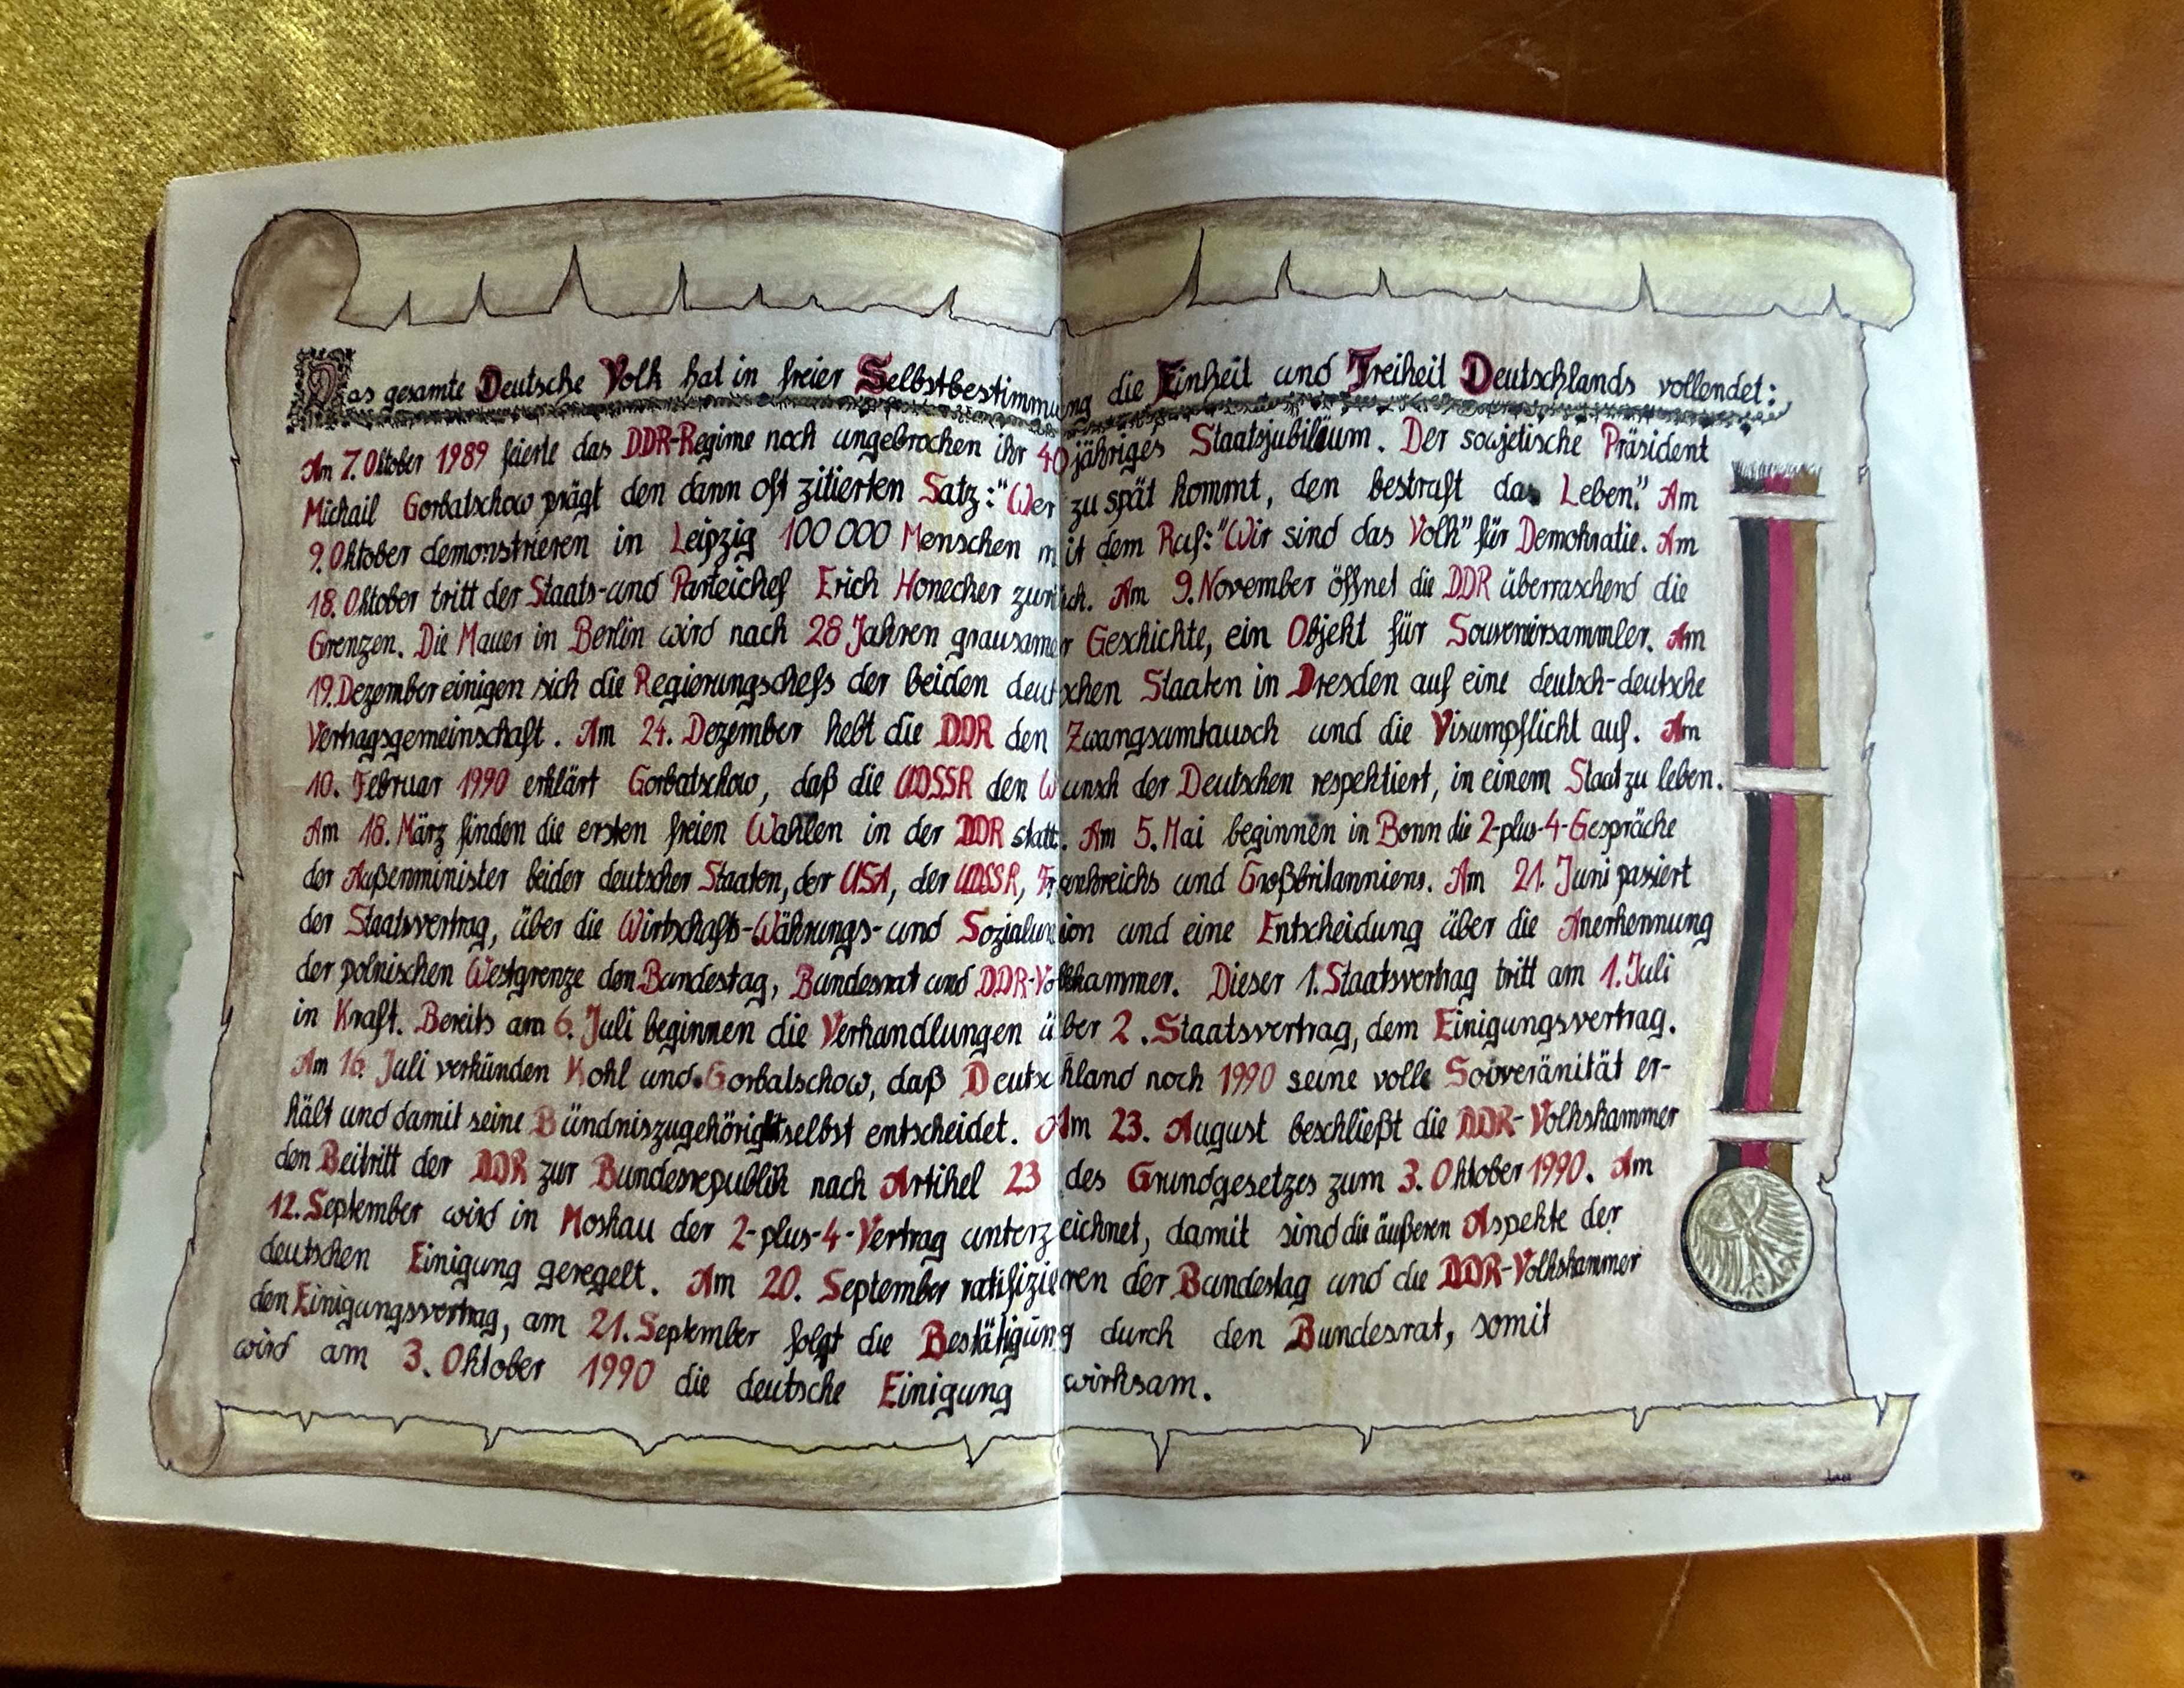 Das gesamte Deutsche Volk hat in freier Selbstbestimmung die Einheit und Freiheit Deutschlands vollendet:
Am 7. Oktober 1989 feierte das DDR-Regime noch ungebrochen ihr 40 jähriges Staatsjubiläum. Der sowjetische Präsident
Michail Gorbatschow prägt den dann oft zitierten Satz: "Wer zu spät kommt, den bestraft das Leben." Am
9. Oktober demonstrieren in Leipzig 100 000 Menschen mit dem Ruf: "Wir sind das Volk" für Demokratie. Am
18. Oktober tritt der Staats- und Parteichef Erich Honecker zurück. Am 9. November öffnet die DDR überraschend die
Grenzen. Die Mauer in Berlin wird nach 28 Jahren grausamer Geschichte, ein Objekt für Souvenirsammler. Am
19. Dezember einigen sich die Regierungschefs der beiden deutschen Staaten in Dresden auf eine deutsch-deutsche
Vertragsgemeinschaft. Am 24. Dezember hebt die DDR den Zwangsumtausch und die Visumpflicht auf. Am
10. Februar 1990 erklärt Gorbatschow, daß die UDSSR den Wunsch der Deutschen respektiert, in einem Staat zu leben.
Am 18. März finden die ersten freien Wahlen in der DDR statt. Am 5. Mai beginnen in Bonn die 2-plus-4-Gespräche
der Außenminister beider deutscher Staaten, der USA, der UDSSR, Frankreichs und Großbritanniens. Am 21. Juni passiert
der Staatsvertrag, über die Wirtschafts-Währungs- und Sozialunion und eine Entscheidung über die Anerkennung
der polnischen Westgrenze den Bundestag, Bundesrat und DDR-Volkskammer. Dieser 1. Staatsvertrag tritt am 1. Juli
in Kraft. Bereits am 6. Juli beginnen die Verhandlungen über 2. Staatsvertrag, dem Einigungsvertrag.
Am 16. Juli verkünden Kohl und Gorbatschow, daß Deutschland noch 1990 seine volle Souveränität er-
hält und damit seine Bündniszugehörigkeit selbst entscheidet. Am 23. August beschließt die DDR-Volkskammer
den Beitritt der DDR zur Bundesrepublik nach Artikel 23 des Grundgesetzes zum 3. Oktober 1990. Am
12. September wird in Moskau der 2-plus-4-Vertrag unterzeichnet, damit sind die äußeren Aspekte der
deutschen Einigung geregelt. Am 20. September ratifizieren der Bundestag und die DDR-Volkskammer
den Einigungsvertrag, am 21. September folgt die Bestätigung durch den Bundesrat, somit
wird am 3. Oktober 1990 die deutsche Einigung wirksam.